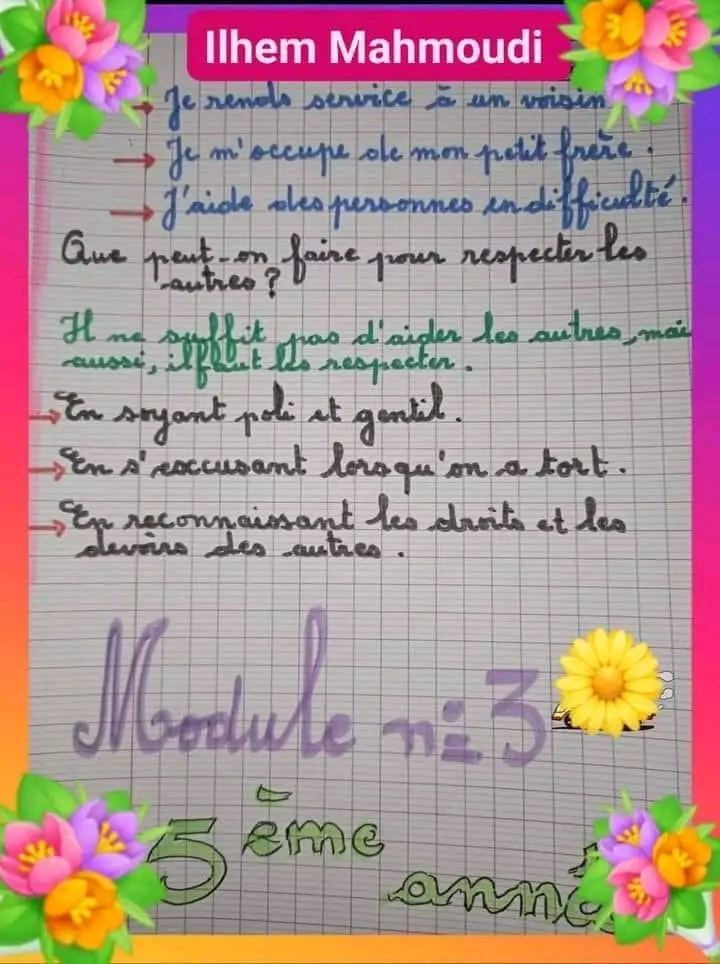 Ilhem Mahmoudi
→ Je rends service à un voisin
→ Je m'occupe de mon petit frère.
→ J'aide des personnes en difficulté.
Que peut-on faire pour respecter les
autres ?
Il ne suffit pas d'aider les autres, mai
aussi, il faut les respecter.
→ En soyant poli et gentil.
→ En s'exccusant lorsqu'on a tort.
→ En reconnaissant les droits et les
devoirs des autres.
Module n= 3
5 ème
anné